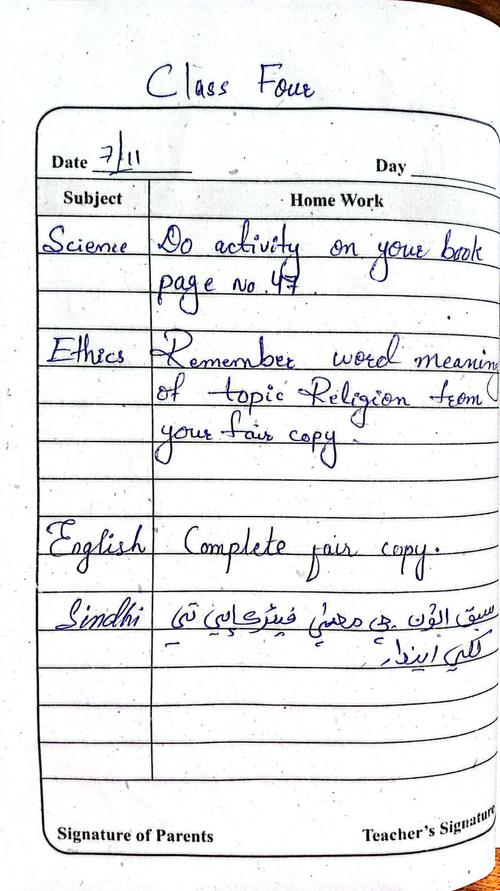 Class Four
Date 7/11 Day
Subject Home Work
Science Do activity on your book
page no. 47.
Ethics Remember word meaning
of topic Religion from
your fair copy.
English Complete fair copy.
Sindhi سبق الڙن جي معنيٰ فيئرڪاپي تي
لکي ايندا۔
Signature of Parents Teacher's Signature